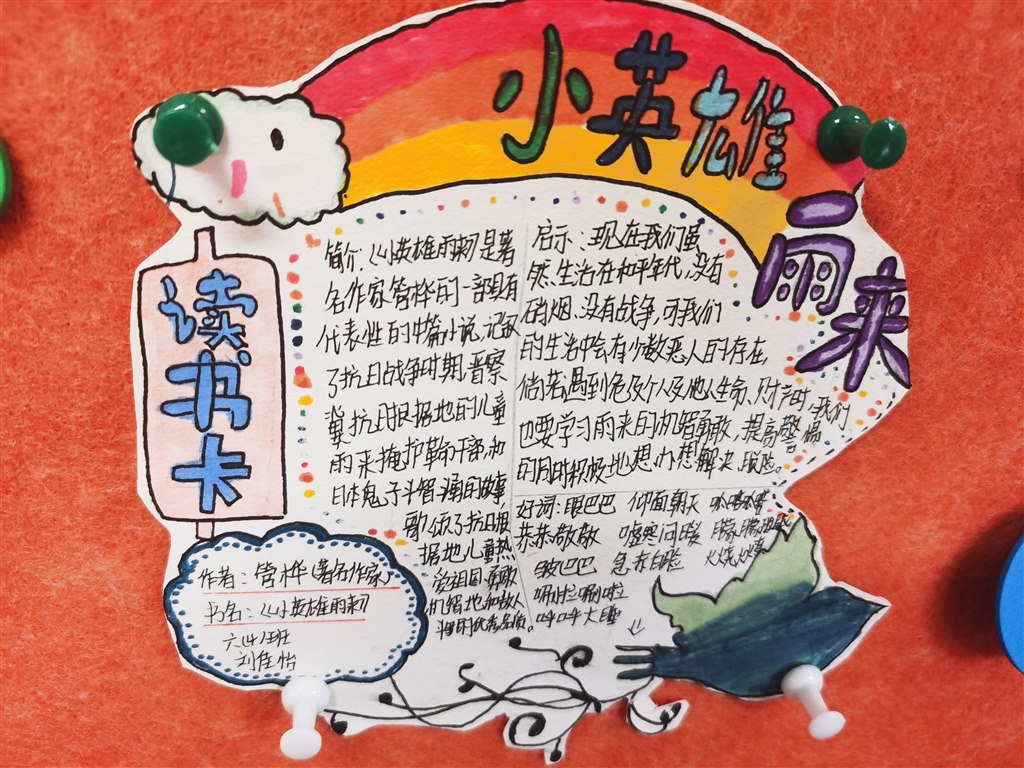 小英雄
雨来
读书卡
简介:《小英雄雨来》是著
名作家管桦的一部具有
代表性的中篇小说,记叙
了抗日战争时期,晋察
冀抗日根据地的儿童
雨来掩护革命干部,和
日本鬼子斗智斗勇的故事,
歌颂了抗日根
据地儿童热
爱祖国、勇敢
机智地和敌人
斗争的优秀品质。
启示:现在我们虽
然生活在和平年代,没有
硝烟、没有战争,可我们
的生活中会有少数恶人的存在,
倘若遇到危及个人及他人生命、财产时,我们
也要学习雨来的机智勇敢,提高警惕
的同时积极地想办法解决
好词:眼巴巴 仰面朝天
恭恭敬敬 嘘寒问暖
皱巴巴 急赤白脸 火烧火燎
呼呼大睡
作者:管桦(著名作家)
书名:《小英雄雨来》
六(4)班
刘佳怡